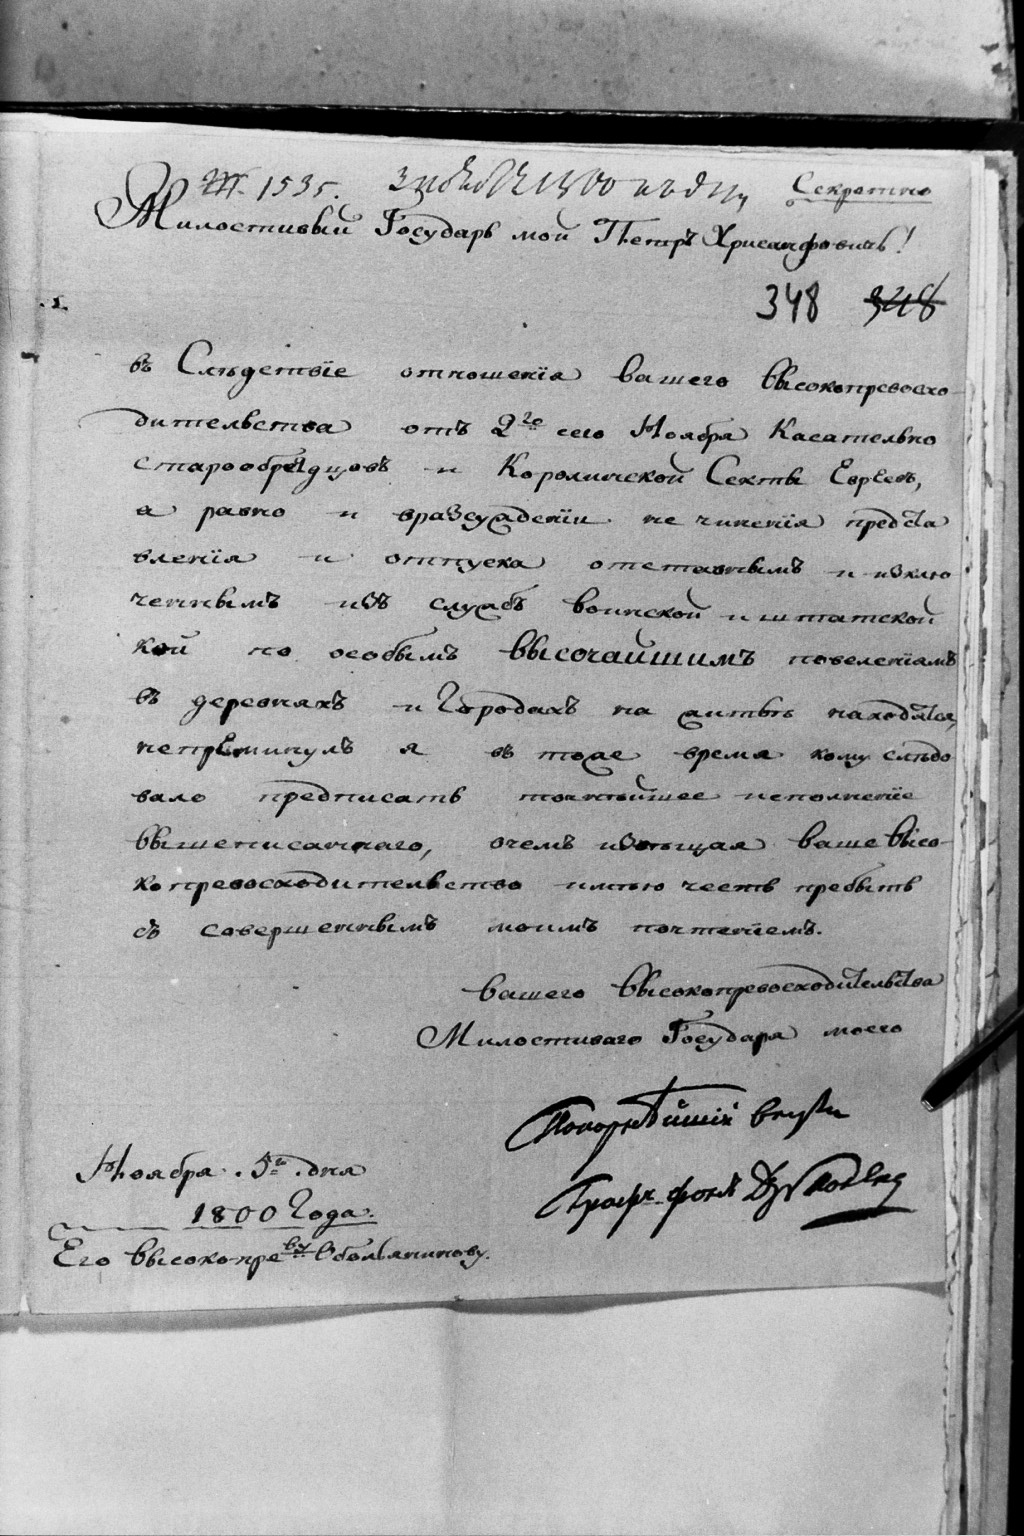 № 1535. Секретно
Милостивый Государь мой Петръ Хрисанфовичъ!
348 348
въ Слѣдствіе отношенія вашего высокопревосхо-
дительства отъ 2го сего Ноября касательно
старообрядцовъ и Секты Евреевъ,
а равно и вразсужденіи не чиненія предста
вленія и отпуска отставнымъ и исклю
ченнымъ изъ службъ воинской и штатской
кой по особымъ высочайшимъ повелениямъ
въ деревняхъ и Городахъ на житьѣ находятся,
непреминулъ я въ тоже время кому слѣдо
вало предписать точнѣйшее исполненіе
вышеписаннаго, очемъ извѣщая ваше высо-
копревосходительство имѣю честь пребыть
съ совершеннымъ моимъ почтеніемъ.
вашего высокопревосходительства
Милостиваго Государя моего
Покорнѣйшій слуга
Графъ фонъ
Ноября 5го дня
1800 Года.
Его высокопреву Обольянинову.